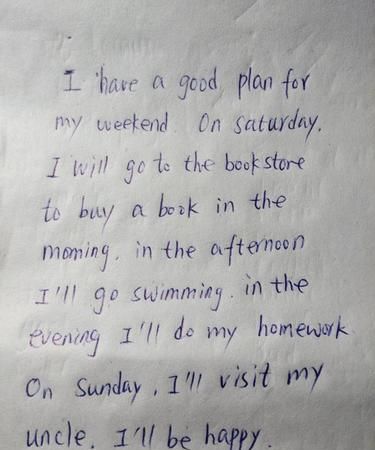 I have a good plan for
my weekend. On saturday,
I will go to the bookstore
to buy a book in the
morning. in the afternoon
I'll go swimming. in the
evening I'll do my homework.
On Sunday, I'll visit my
uncle. I'll be happy.